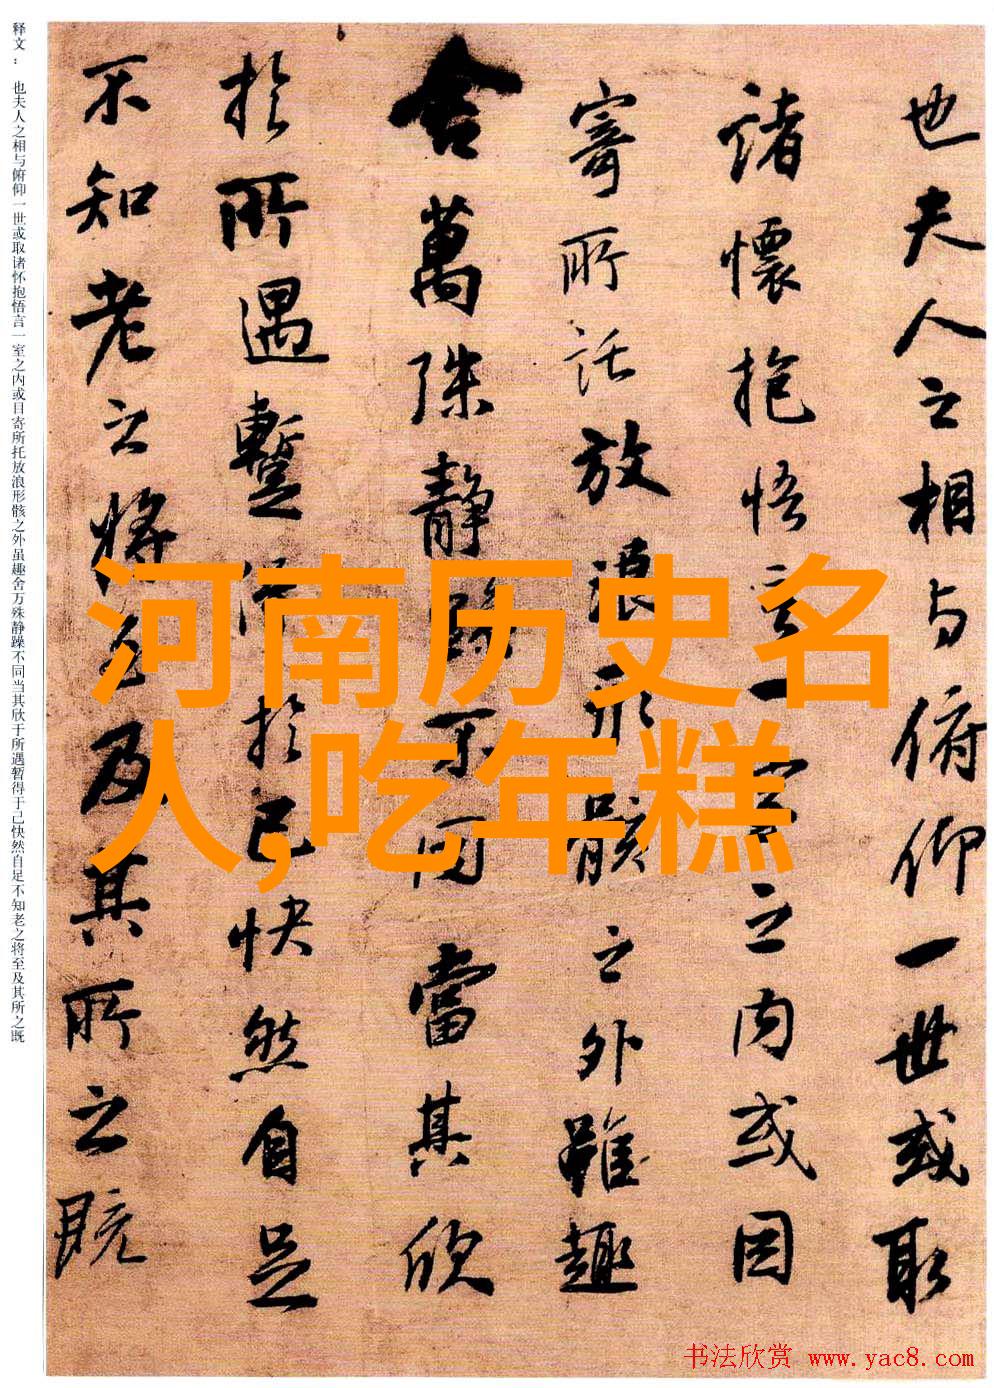 释文：也夫人之相与俯仰一世或取诸怀抱悟言一室之内或目寄所托放浪形骸之外虽趣舍万殊静躁不同当其欣于所遇暂得于己快然自足不知老之将至及其所之既
也夫人之相与俯仰一世或取
诸懷抱悟言一室之内或因
寄所託放浪形骸之外雖趣
舍萬殊静躁不同當其欣
於所遇暫得於己快然自足
不知老之将至及其所之既
河南历史名
人,吃年糕
书法欣赏 www.yac8.com